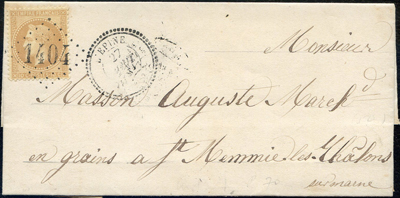 1404
EPINE
Monsieur
Masson Auguste March^d
en grains a S^t Memmie-les-Châlons
sur marne